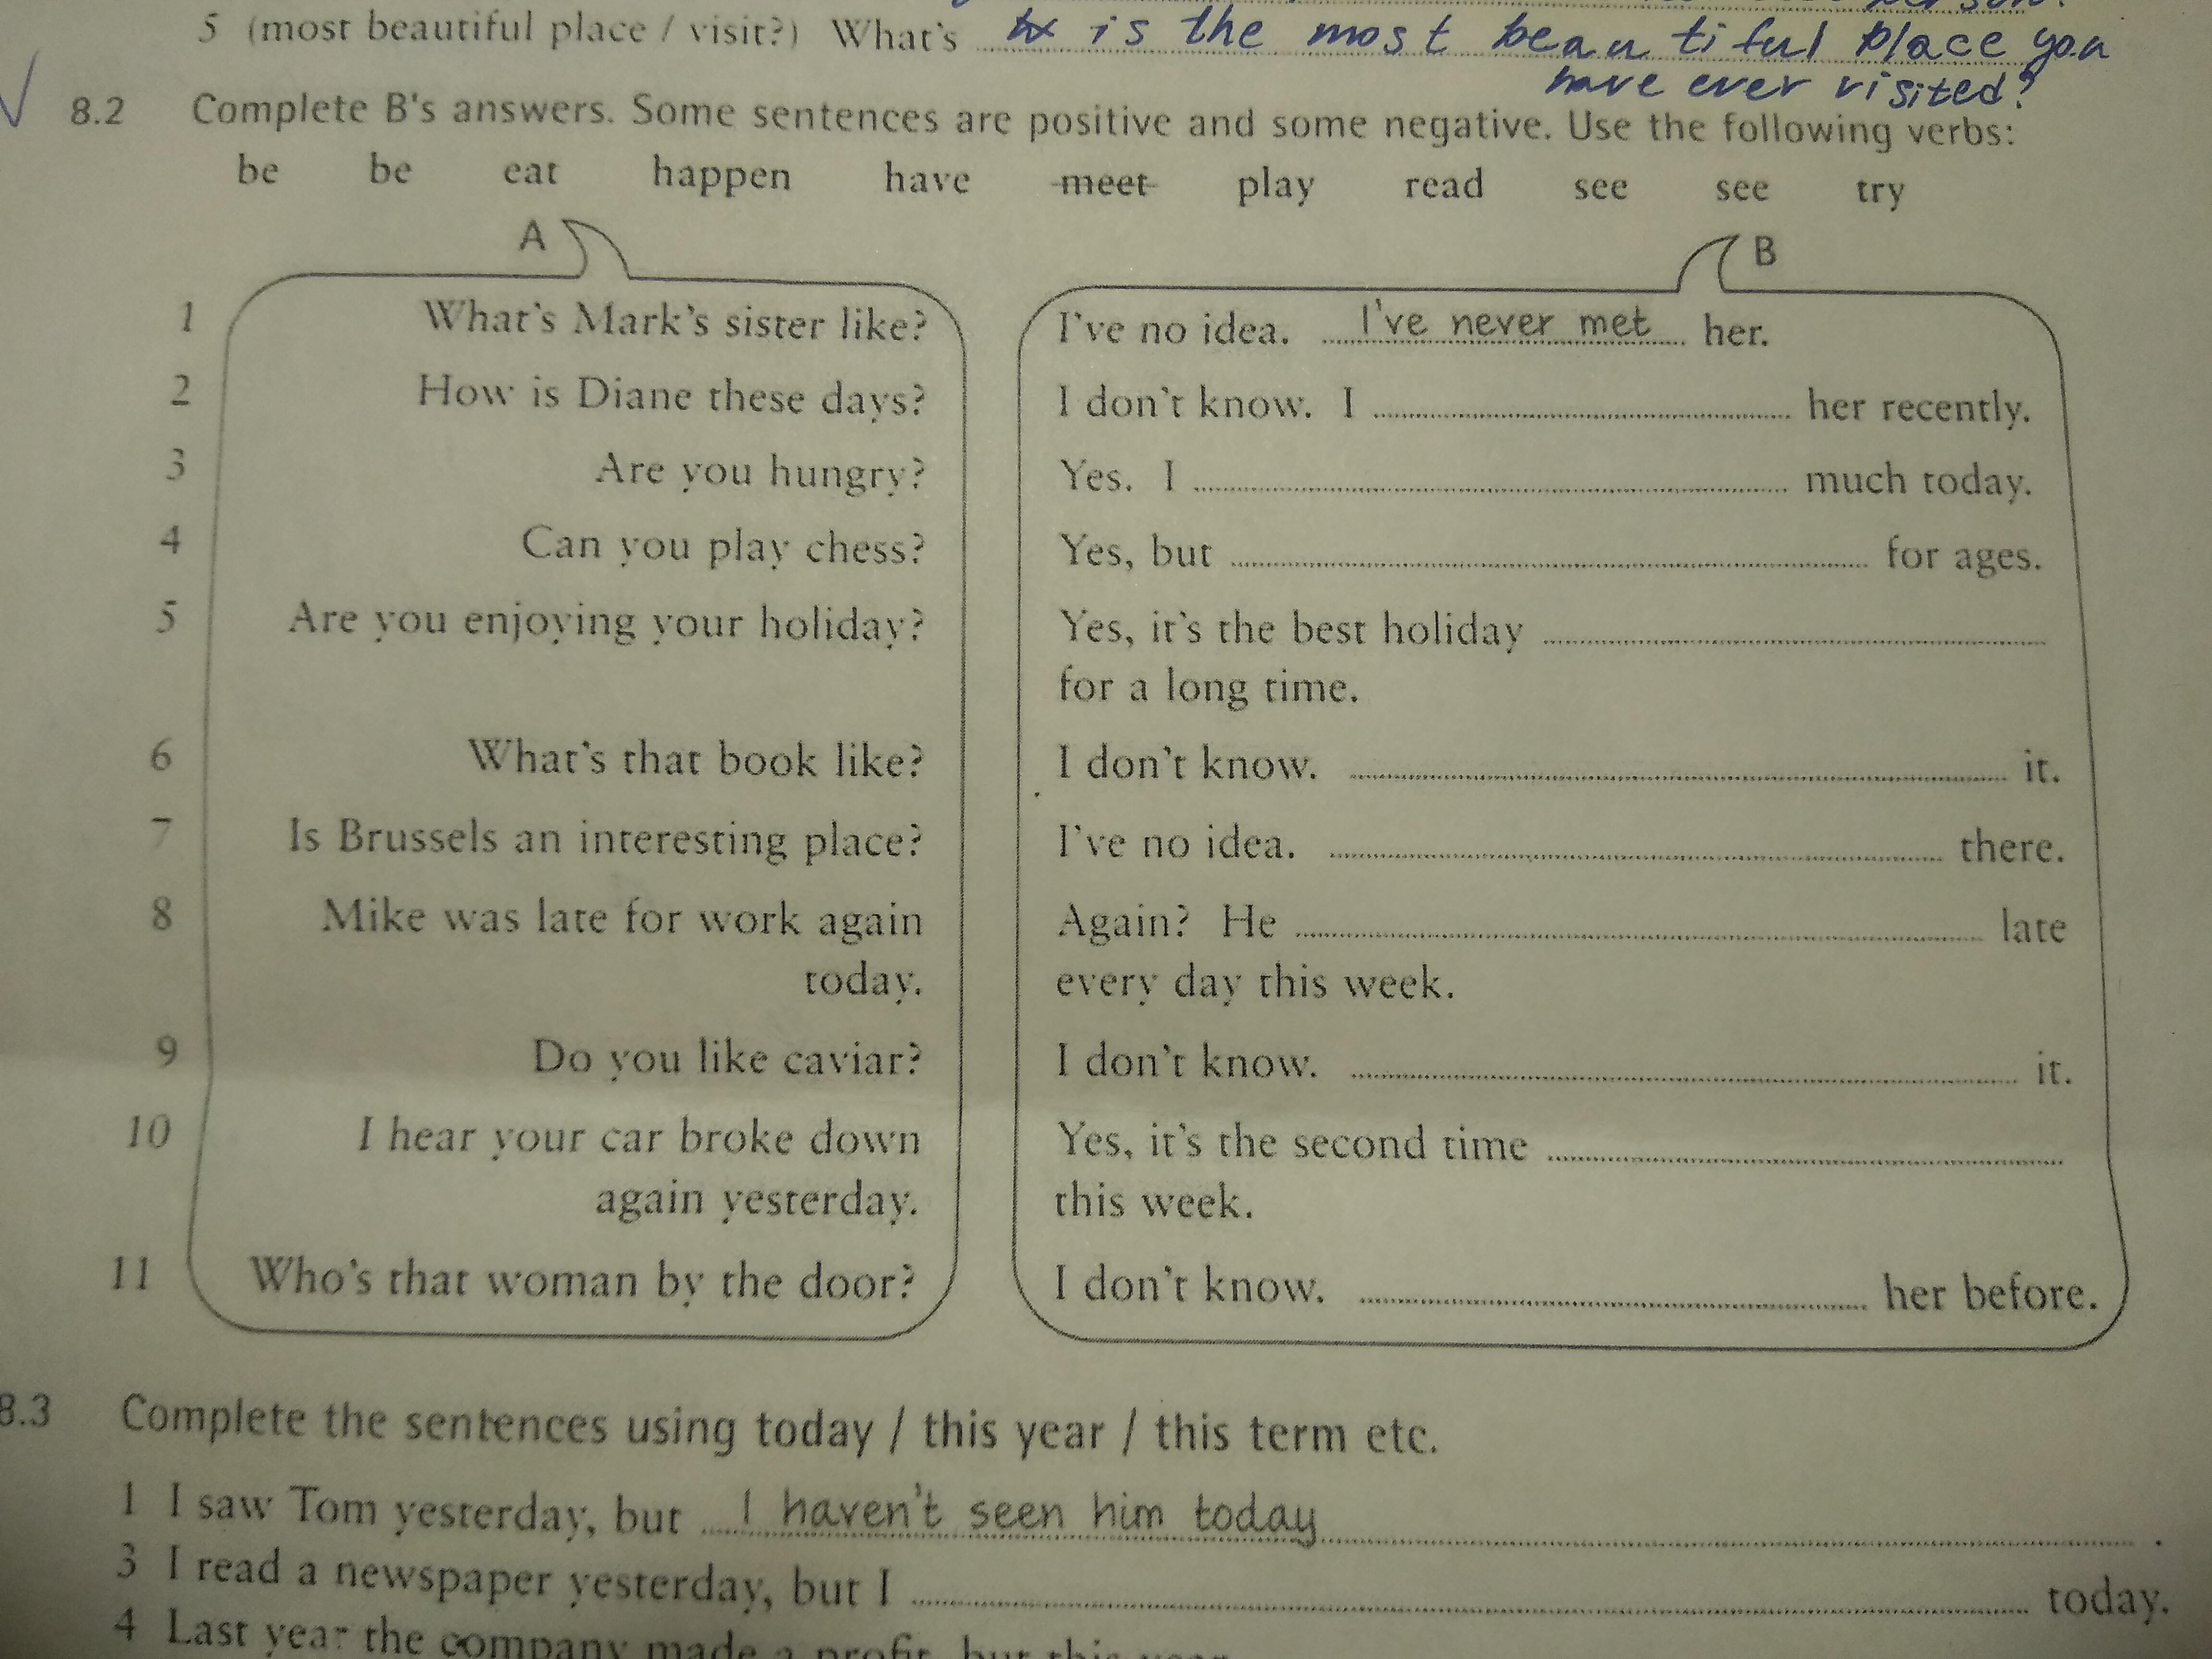 5 (most beautiful place / visit?) What's is the most beautiful place you
have ever visited?
8.2 Complete B's answers. Some sentences are positive and some negative. Use the following verbs:
be be eat happen have meet play read see see try
A B
1 What's Mark's sister like? I've no idea. I've never met her.
2 How is Diane these days? I don't know. I ........ her recently.
3 Are you hungry? Yes. I ........ much today.
4 Can you play chess? Yes, but ........ for ages.
5 Are you enjoying your holiday? Yes, it's the best holiday ........
for a long time.
6 What's that book like? I don't know. ........ it.
7 Is Brussels an interesting place? I've no idea. ........ there.
8 Mike was late for work again Again? He ........ late
today. every day this week.
9 Do you like caviar? I don't know. ........ it.
10 I hear your car broke down Yes, it's the second time ........
again yesterday. this week.
11 Who's that woman by the door? I don't know. ........ her before.
8.3 Complete the sentences using today / this year / this term etc.
1 I saw Tom yesterday, but I haven't seen him today ........ .
3 I read a newspaper yesterday, but I ........ today.
4 Last year the company made a profit, but this year